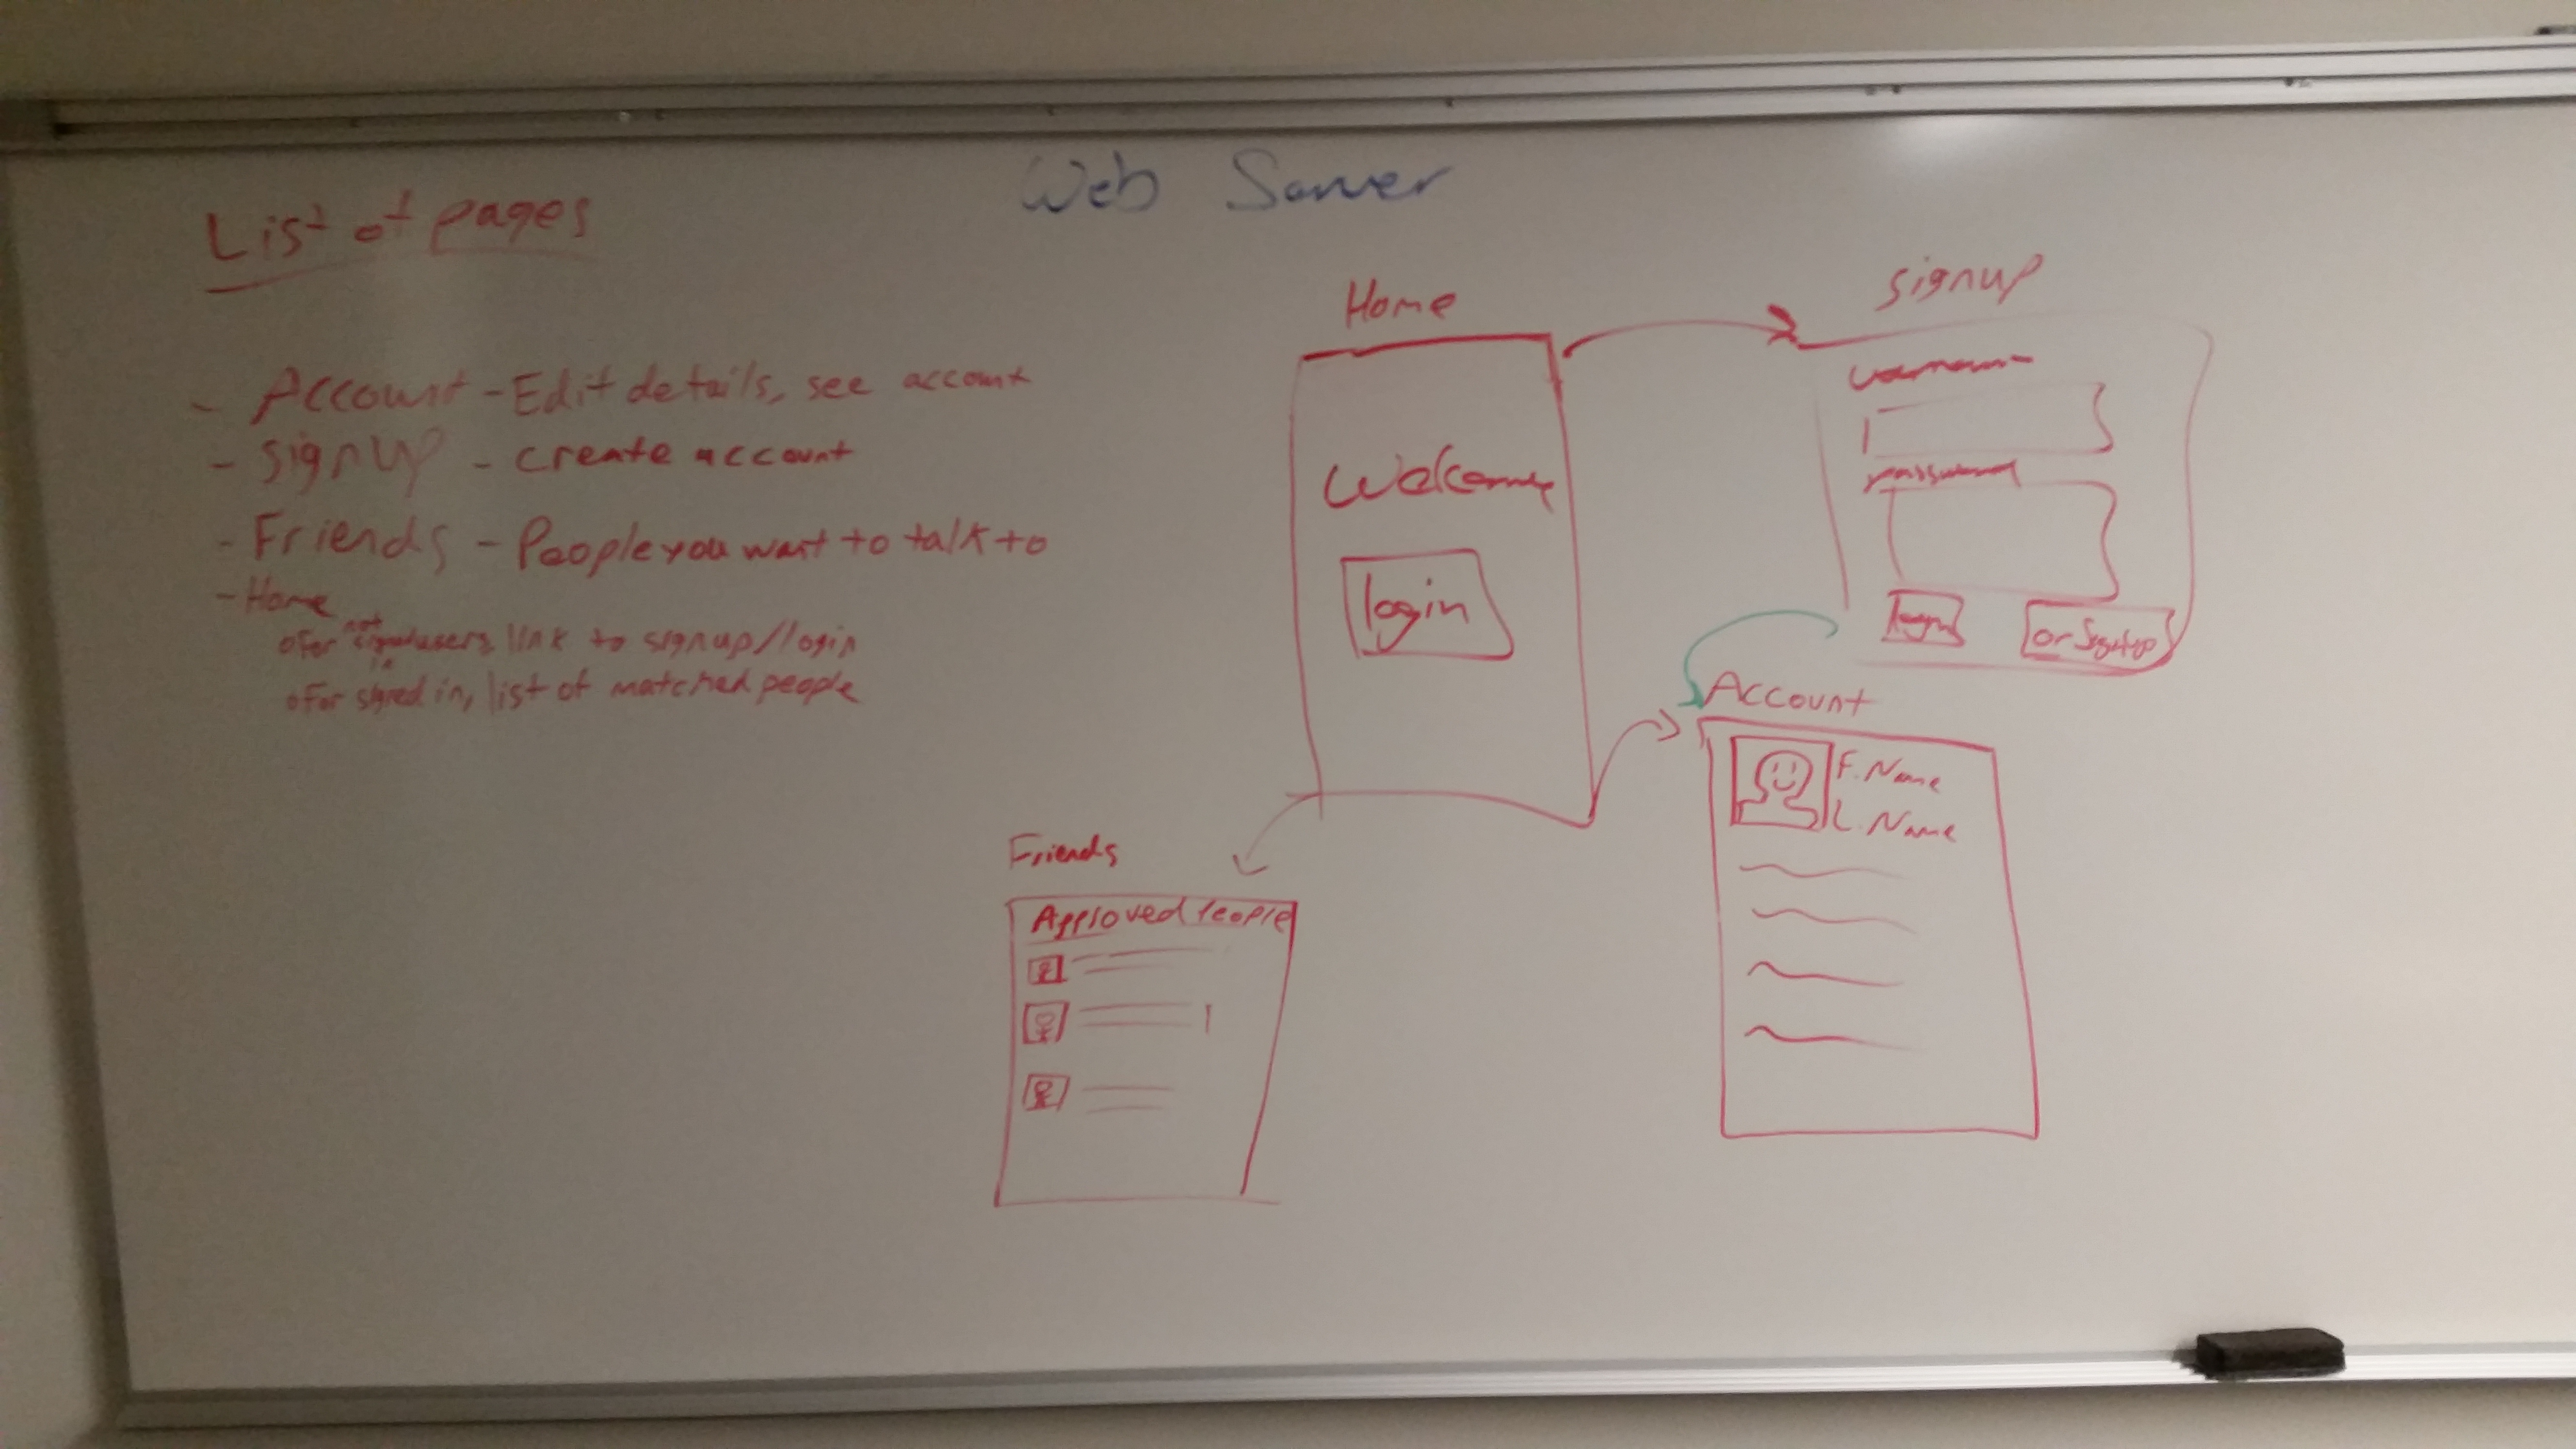 Web Server
List of pages
- Account - Edit details, see account
- Signup - create account
- Friends - People you want to talk to
- Home
o For not signed in users, link to signup/login
o For signed in, list of matched people
Home
Welcome
login
signup
username
password
login
or Signup
Account
F. Name
L. Name
Friends
Approved People